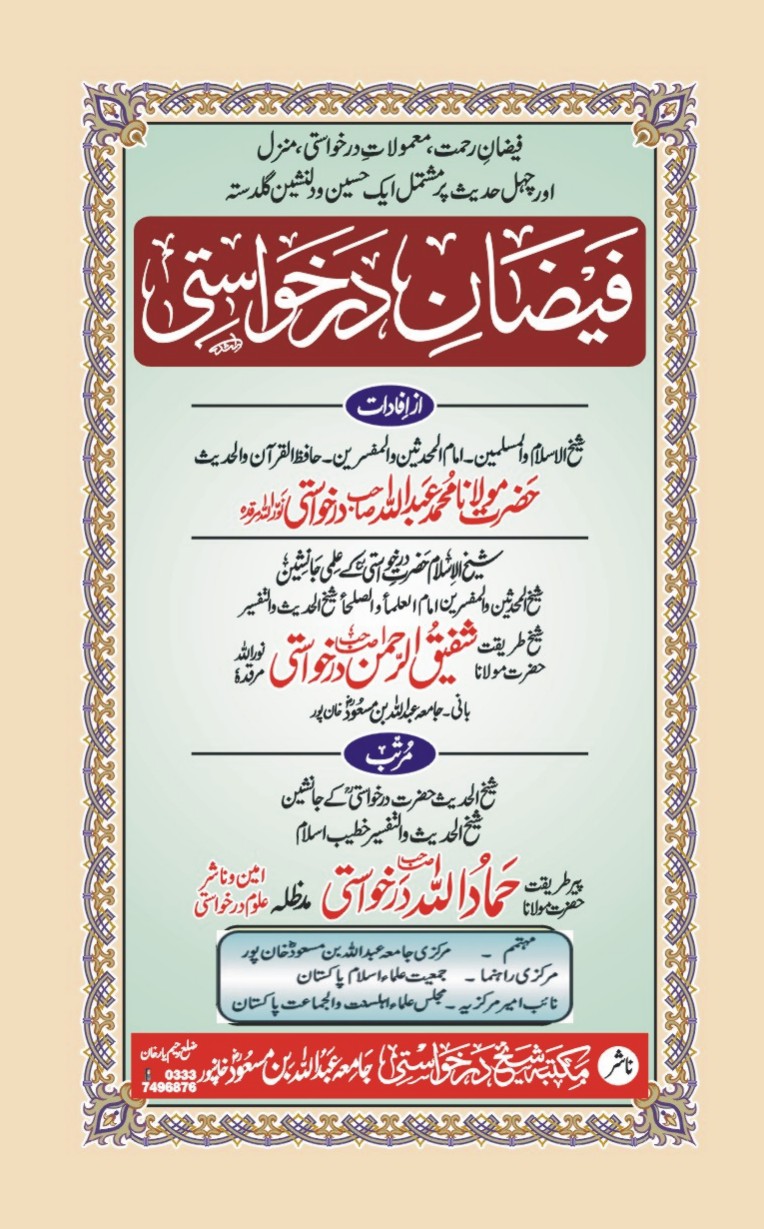 فیضانِ رحمت، معمولاتِ درخواستی، منزل
اور چہل حدیث پر مشتمل ایک حسین و دلنشین گلدستہ
فیضانِ درخواستی
از اِفادات
شیخ الاسلام والمسلمین۔ امام المحدثین والمفسرین۔ حافظ القرآن والحدیث
حضرت مولانا محمد عبداللہ صاحب درخواستی نوّر اللہ مرقدہ
شیخ الاسلام حضرت درخواستیؒ کے علمی جانشین
شیخ المحدثین والمفسرین امام العلمأ والصلحأ شیخ الحدیث والتفسیر
شیخ طریقت حضرت مولانا شفیق الرحمن صاحب درخواستی نور اللہ مرقدہٗ
بانی۔ جامعہ عبداللہ بن مسعودؓ خان پور
مُرتّب
شیخ الحدیث حضرت درخواستیؒ کے جانشین
شیخ الحدیث والتفسیر خطیب اسلام
پیر طریقت حضرت مولانا حماداللہ صاحب درخواستی مدظلہ امین و ناشر علوم درخواستی
مہتمم ۔ مرکزی جامعہ عبداللہ بن مسعودؓ خان پور
مرکزی راہنما ۔ جمعیت علماء اسلام پاکستان
نائب امیر مرکزیہ ۔ مجلس علماء اہلسنت والجماعت پاکستان
ناشر مکتبہ شیخ درخواستی جامعہ عبداللہ بن مسعودؓ خانپور ضلع رحیم یار خان
0333 7496876